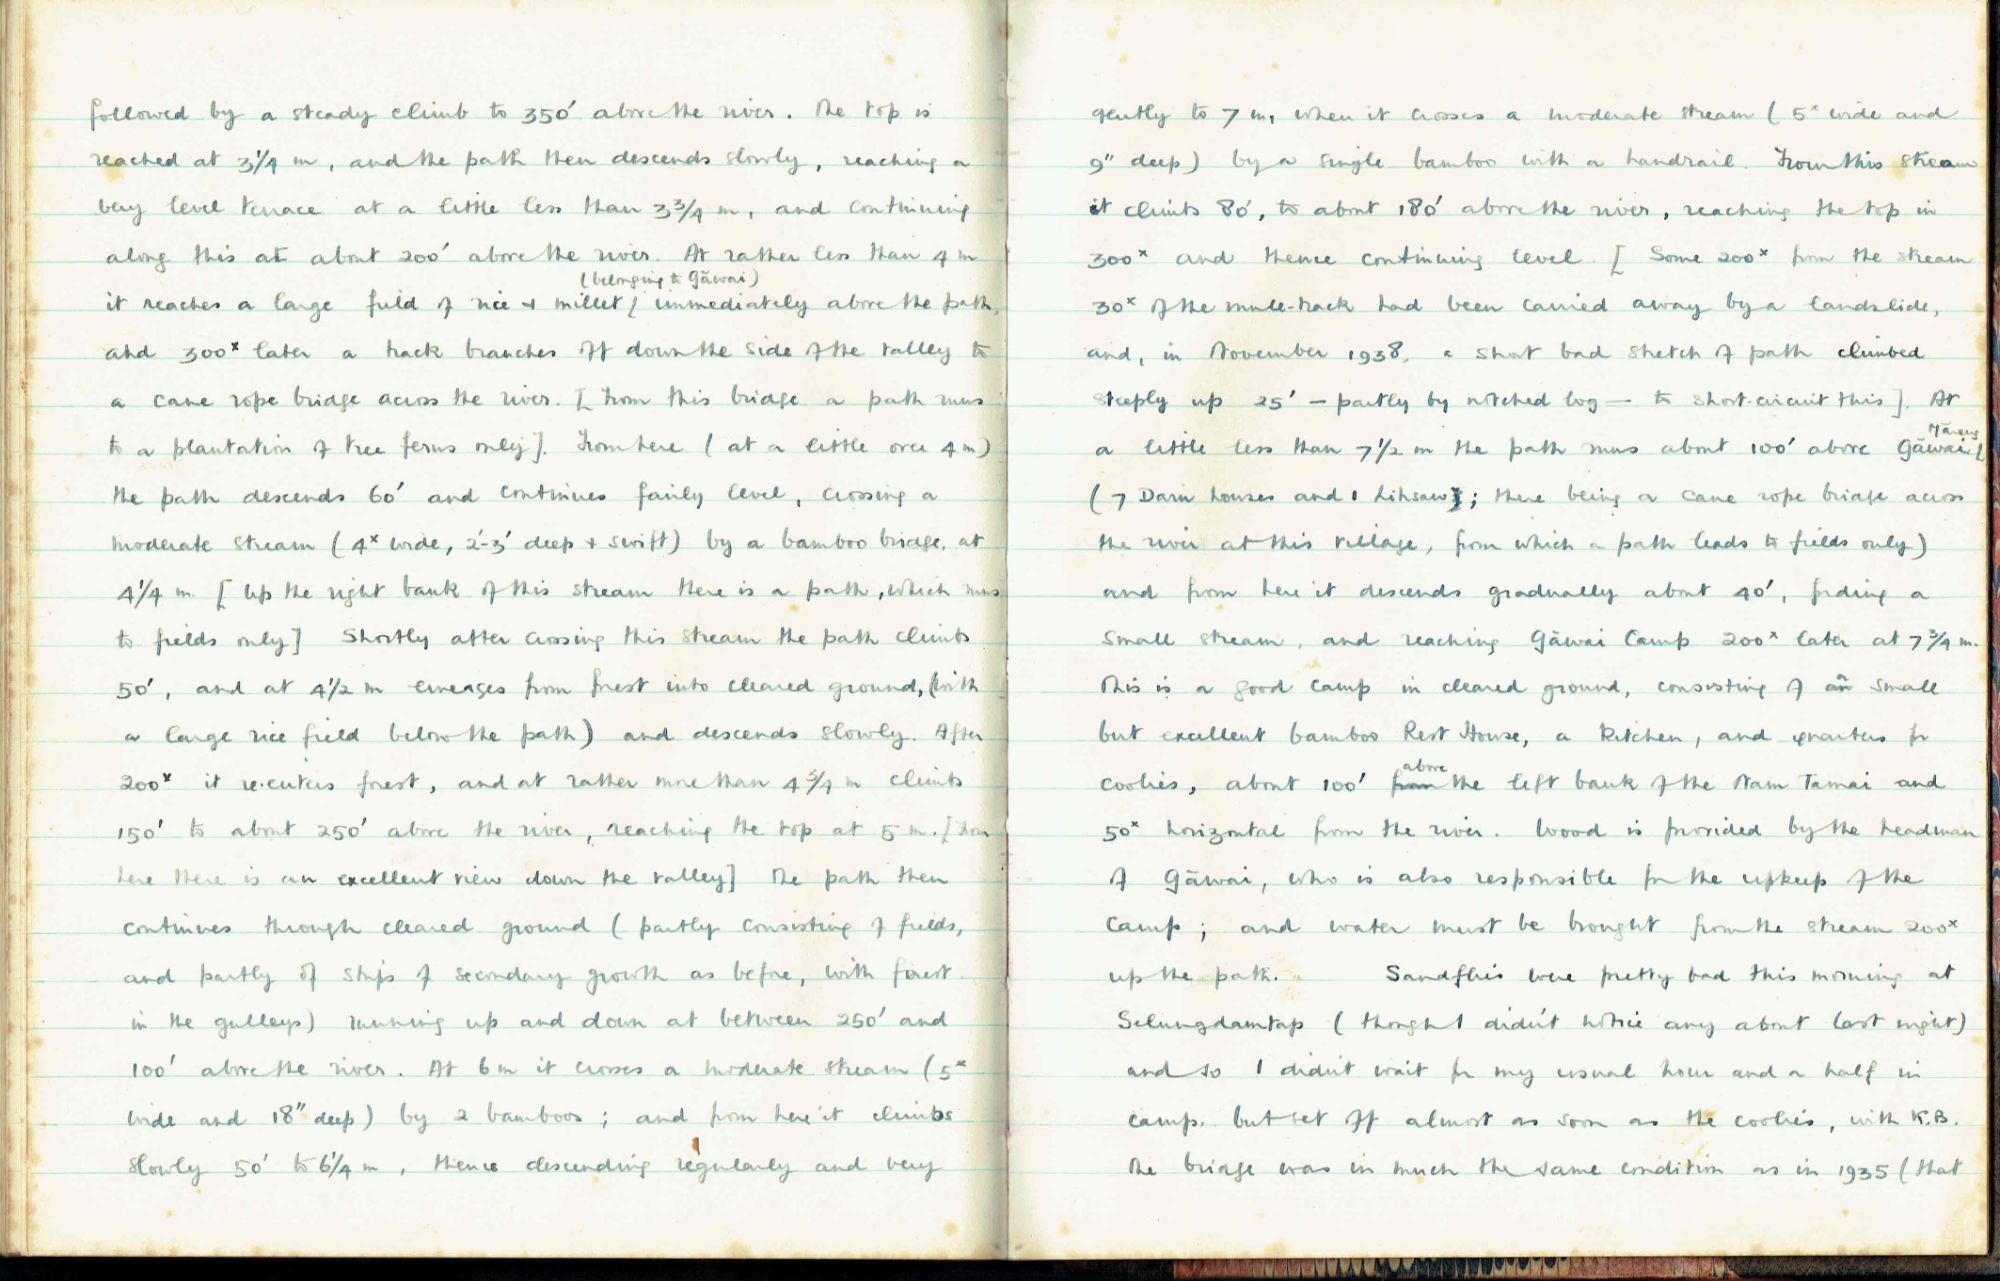 followed by a steady climb to 350' above the river. The top is
reached at 3¼ m, and the path then descends slowly, reaching a
very level terrace at a little less than 3¾ m, and continuing
along this at about 200' above the river. At rather less than 4 m
(belonging to Gāwai)
it reaches a large field of rice + millet / immediately above the path,
and 300ˣ later a track branches off down the side of the valley to
a cane rope bridge across the river. [From this bridge a path runs
to a plantation of tree ferns only]. From here (at a little over 4 m)
the path descends 60' and continues fairly level, crossing a
moderate stream (4ˣ wide, 2'-3' deep + swift) by a bamboo bridge, at
4¼ m. [Up the right bank of this stream there is a path, which runs
to fields only] Shortly after crossing this stream the path climbs
50', and at 4½ m emerges from forest into cleared ground, (with
a large rice field below the path) and descends slowly. After
200ˣ it re-enters forest, and at rather more than 4¾ m climbs
150' to about 250' above the river, reaching the top at 5 m. [From
here there is an excellent view down the valley] The path then
continues through cleared ground (partly consisting of fields,
and partly of strips of secondary growth as before, with forest
in the gulleys) running up and down at between 250' and
100' above the river. At 6 m it crosses a moderate stream (5ˣ
wide and 18" deep) by 2 bamboos; and from here it climbs
slowly 50' to 6¼ m, thence descending regularly and very
gently to 7 m, when it crosses a moderate stream (5ˣ wide and
9" deep) by a single bamboo with a handrail. From this stream
it climbs 80', to about 180' above the river, reaching the top in
300ˣ and thence continuing level. [Some 200ˣ from the stream
30ˣ of the mule-track had been carried away by a landslide,
and, in November 1938, a short bad stretch of path climbed
steeply up 25' — partly by notched log — to short-circuit this]. At
a little less than 7½ m the path runs about 100' above Gāwai /
(7 Daru houses and 1 Lihsaw); there being a cane rope bridge across
the river at this village, from which a path leads to fields only)
and from here it descends gradually about 40', fording a
small stream, and reaching Gāwai Camp 200ˣ later at 7¾ m.
This is a good camp in cleared ground, consisting of a small
but excellent bamboo Rest House, a kitchen, and quarters for
coolies, about 100' from above the left bank of the Nam Tamai and
50ˣ horizontal from the river. Wood is provided by the headman
of Gāwai, who is also responsible for the upkeep of the
camp; and water must be brought from the stream 200ˣ
up the path. Sandflies were pretty bad this morning at
Selungdamtap (though I didn't notice any about last night)
and so I didn't wait for my usual hour and a half in
camp, but set off almost as soon as the coolies, with K.B.
The bridge was in much the same condition as in 1935 (that